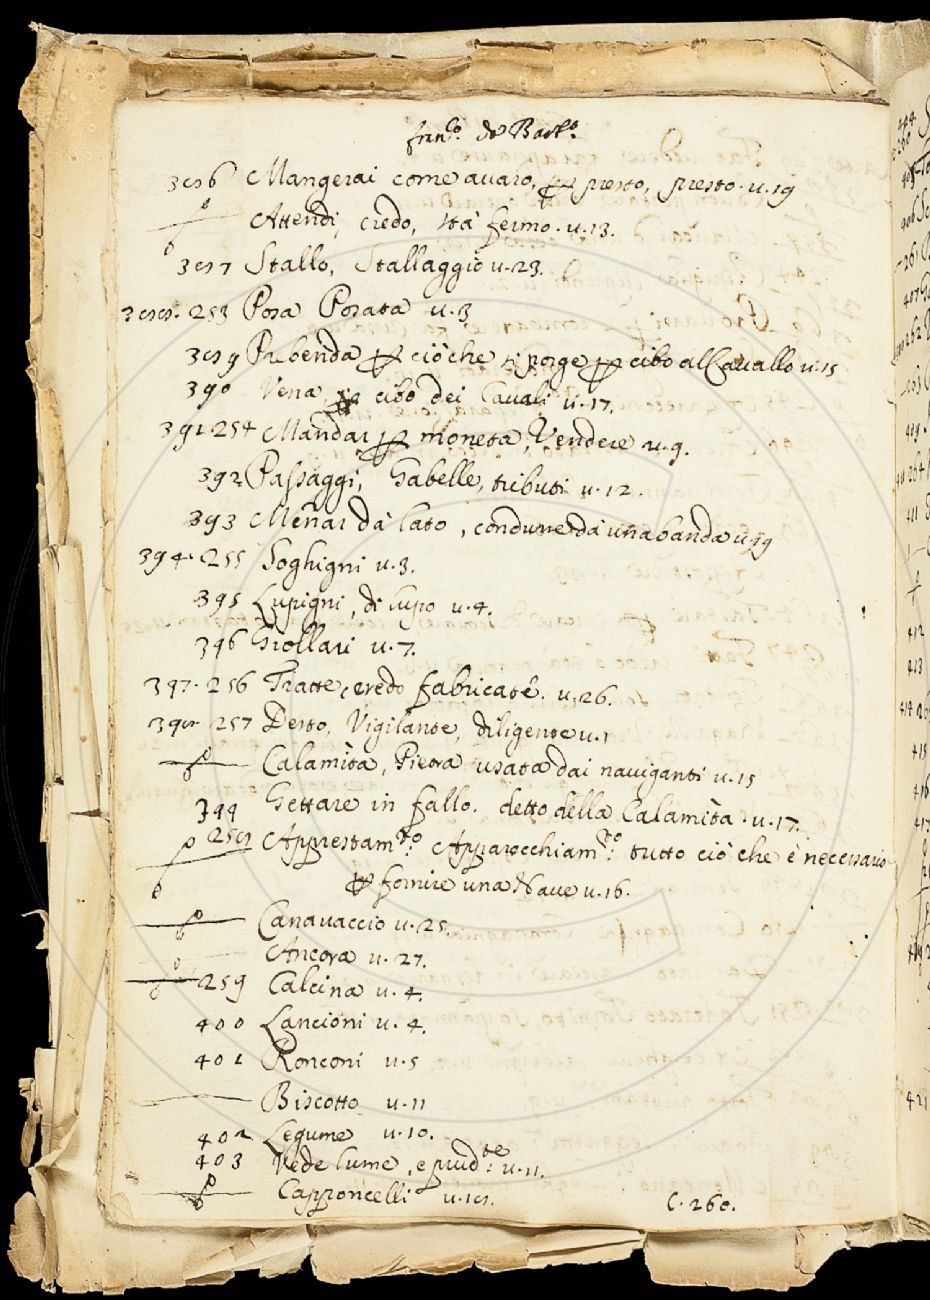 fran.co da Barb.o
386 Mangerai come auaro, per presto, presto. u. 19
Attendi, credo, stà fermo. u. 13.
387 Stallo, Stallaggio u. 23.
388. 253 Posa Posata u. 3
389 Prebenda per ciò che si porge per cibo al Cauallo u. 15
390 Vena, per cibo dei Cauali u. 17.
391. 254 Mandar per moneta, Vendere u. 9.
392 Passaggi, Gabelle, tributi u. 12.
393 Menar dà lato, condurre dà una banda u. 19
394. 255 Soghigni u. 3.
395 Lupigni, di lupo u. 4.
396 Giollari u. 7.
397. 256 Tratte, credo fabricate. u. 26.
398 257 Desto, Vigilante, diligente u. 1
Calamita, Pietra usata dai nauiganti u. 15
399 Gettare in fallo. detto della Calamità u. 17.
258 Apprestam.to Apparecchiam.to: tutto ciò che è necessario
per fornire una Naue u. 16.
Canauaccio u. 25.
Ancora u. 27.
259 Calcina u. 4.
400 Lancioni u. 4.
401 Ronconi u. 5
Biscotto u. 11
402 Legume u. 10.
403 Vede lume, e u. 11.
Capponcelli u. 18.
C. 260.